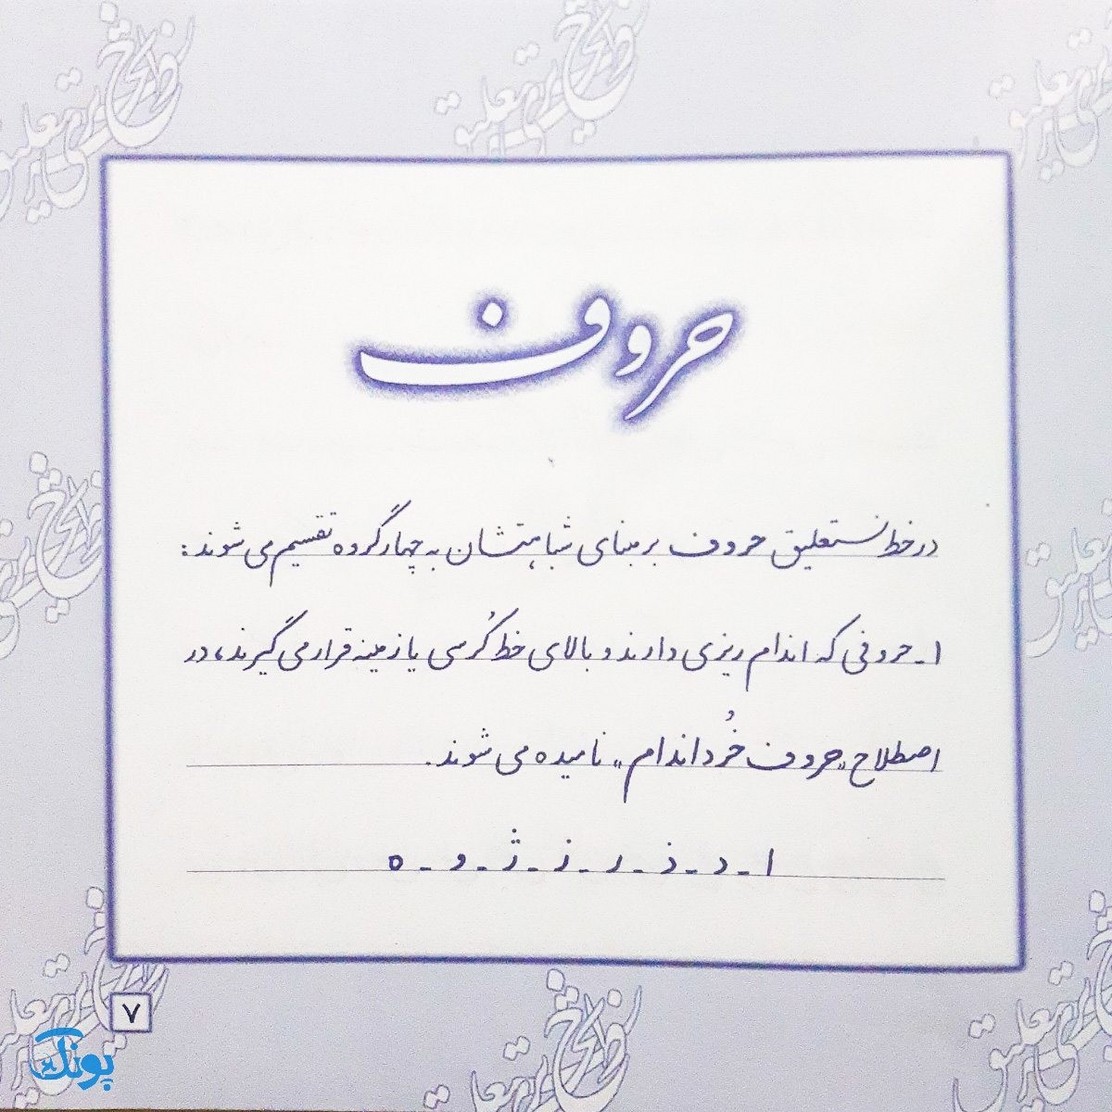 حروف
در خط نستعلیق حروف بر مبنای شباهتشان به چهار گروه تقسیم می‌شوند:
۱ـ حروفی که اندام ریزی دارند و بالای خط کُرسی یا زمینه قرار می‌گیرند، در
اصطلاح «حروف خُرد اندام» نامیده می‌شوند.
ا ـ د ـ ذ ـ ر ـ ز ـ ژ ـ و ـ ه
۷
پونک